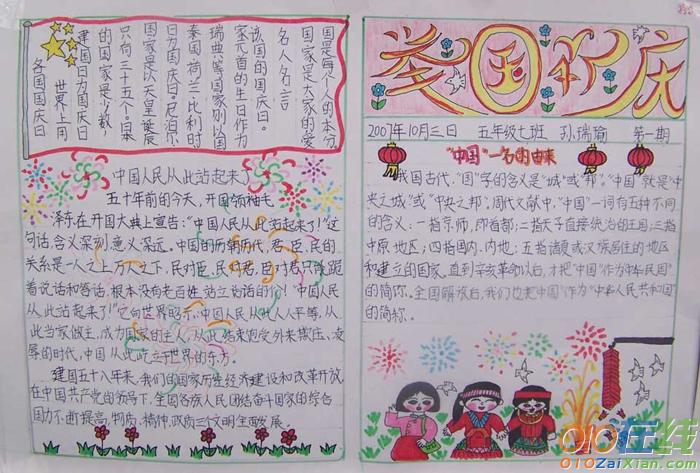 各国国庆日
世界上用
建国日为国庆日
的国家是少数,
只有三十五个。日本
国家是以天皇诞辰
日为国庆日,尼泊尔
泰国、荷兰、比利时
瑞典等国家则以国
家元首的生日作为
该国的国庆日。
名人名言
国家是大家的,爱
国是每个人的本分
中国人民从此站起来了
五十年前的今天,开国领袖毛
泽东在开国大典上宣告:“中国人民从此站起来了!”这
句话,含义深刻,意义深远。中国的历朝历代,君、臣、民的
关系是一人之上万人之下,民对臣、民对君、臣对君只能跪
着说话和答话,根本没有老百姓站立说话的份!“中国人民
从此站起来了!”它向世界昭示,“中国人民从此人人平等,从
此当家做主,成为国家的主人,从此结束饱受外来欺压、凌
辱的时代,中国从此屹立于世界的东方。
建国五十八年来,我们的国家历经经济建设和改革开放
在中国共产党的领导下,全国各族人民团结奋斗国家的综合
国力不断提高,物质、精神、政质三个文明全面发展。
国庆
2007年10月三日 五年级七班 孙瑞瑜 第一期
“中国”一名的由来
我国古代,“国”字的含义是“城”或“邦”。“中国”就是“中
央之城”或“中央之邦”。周代文献中,“中国”一词有五种不同
的含义:一指京师,即首都;二指天子直接统治的王国;三指
中原地区;四指国内、内地;五指诸夏或汉族居住的地区
和建立的国家。直到辛亥革命以后,才把“中国”作为“中华民国”
的简称。全国解放后,我们也把“中国”作为“中华人民共和国”
的简称。
010在线
010ZaiXian.com